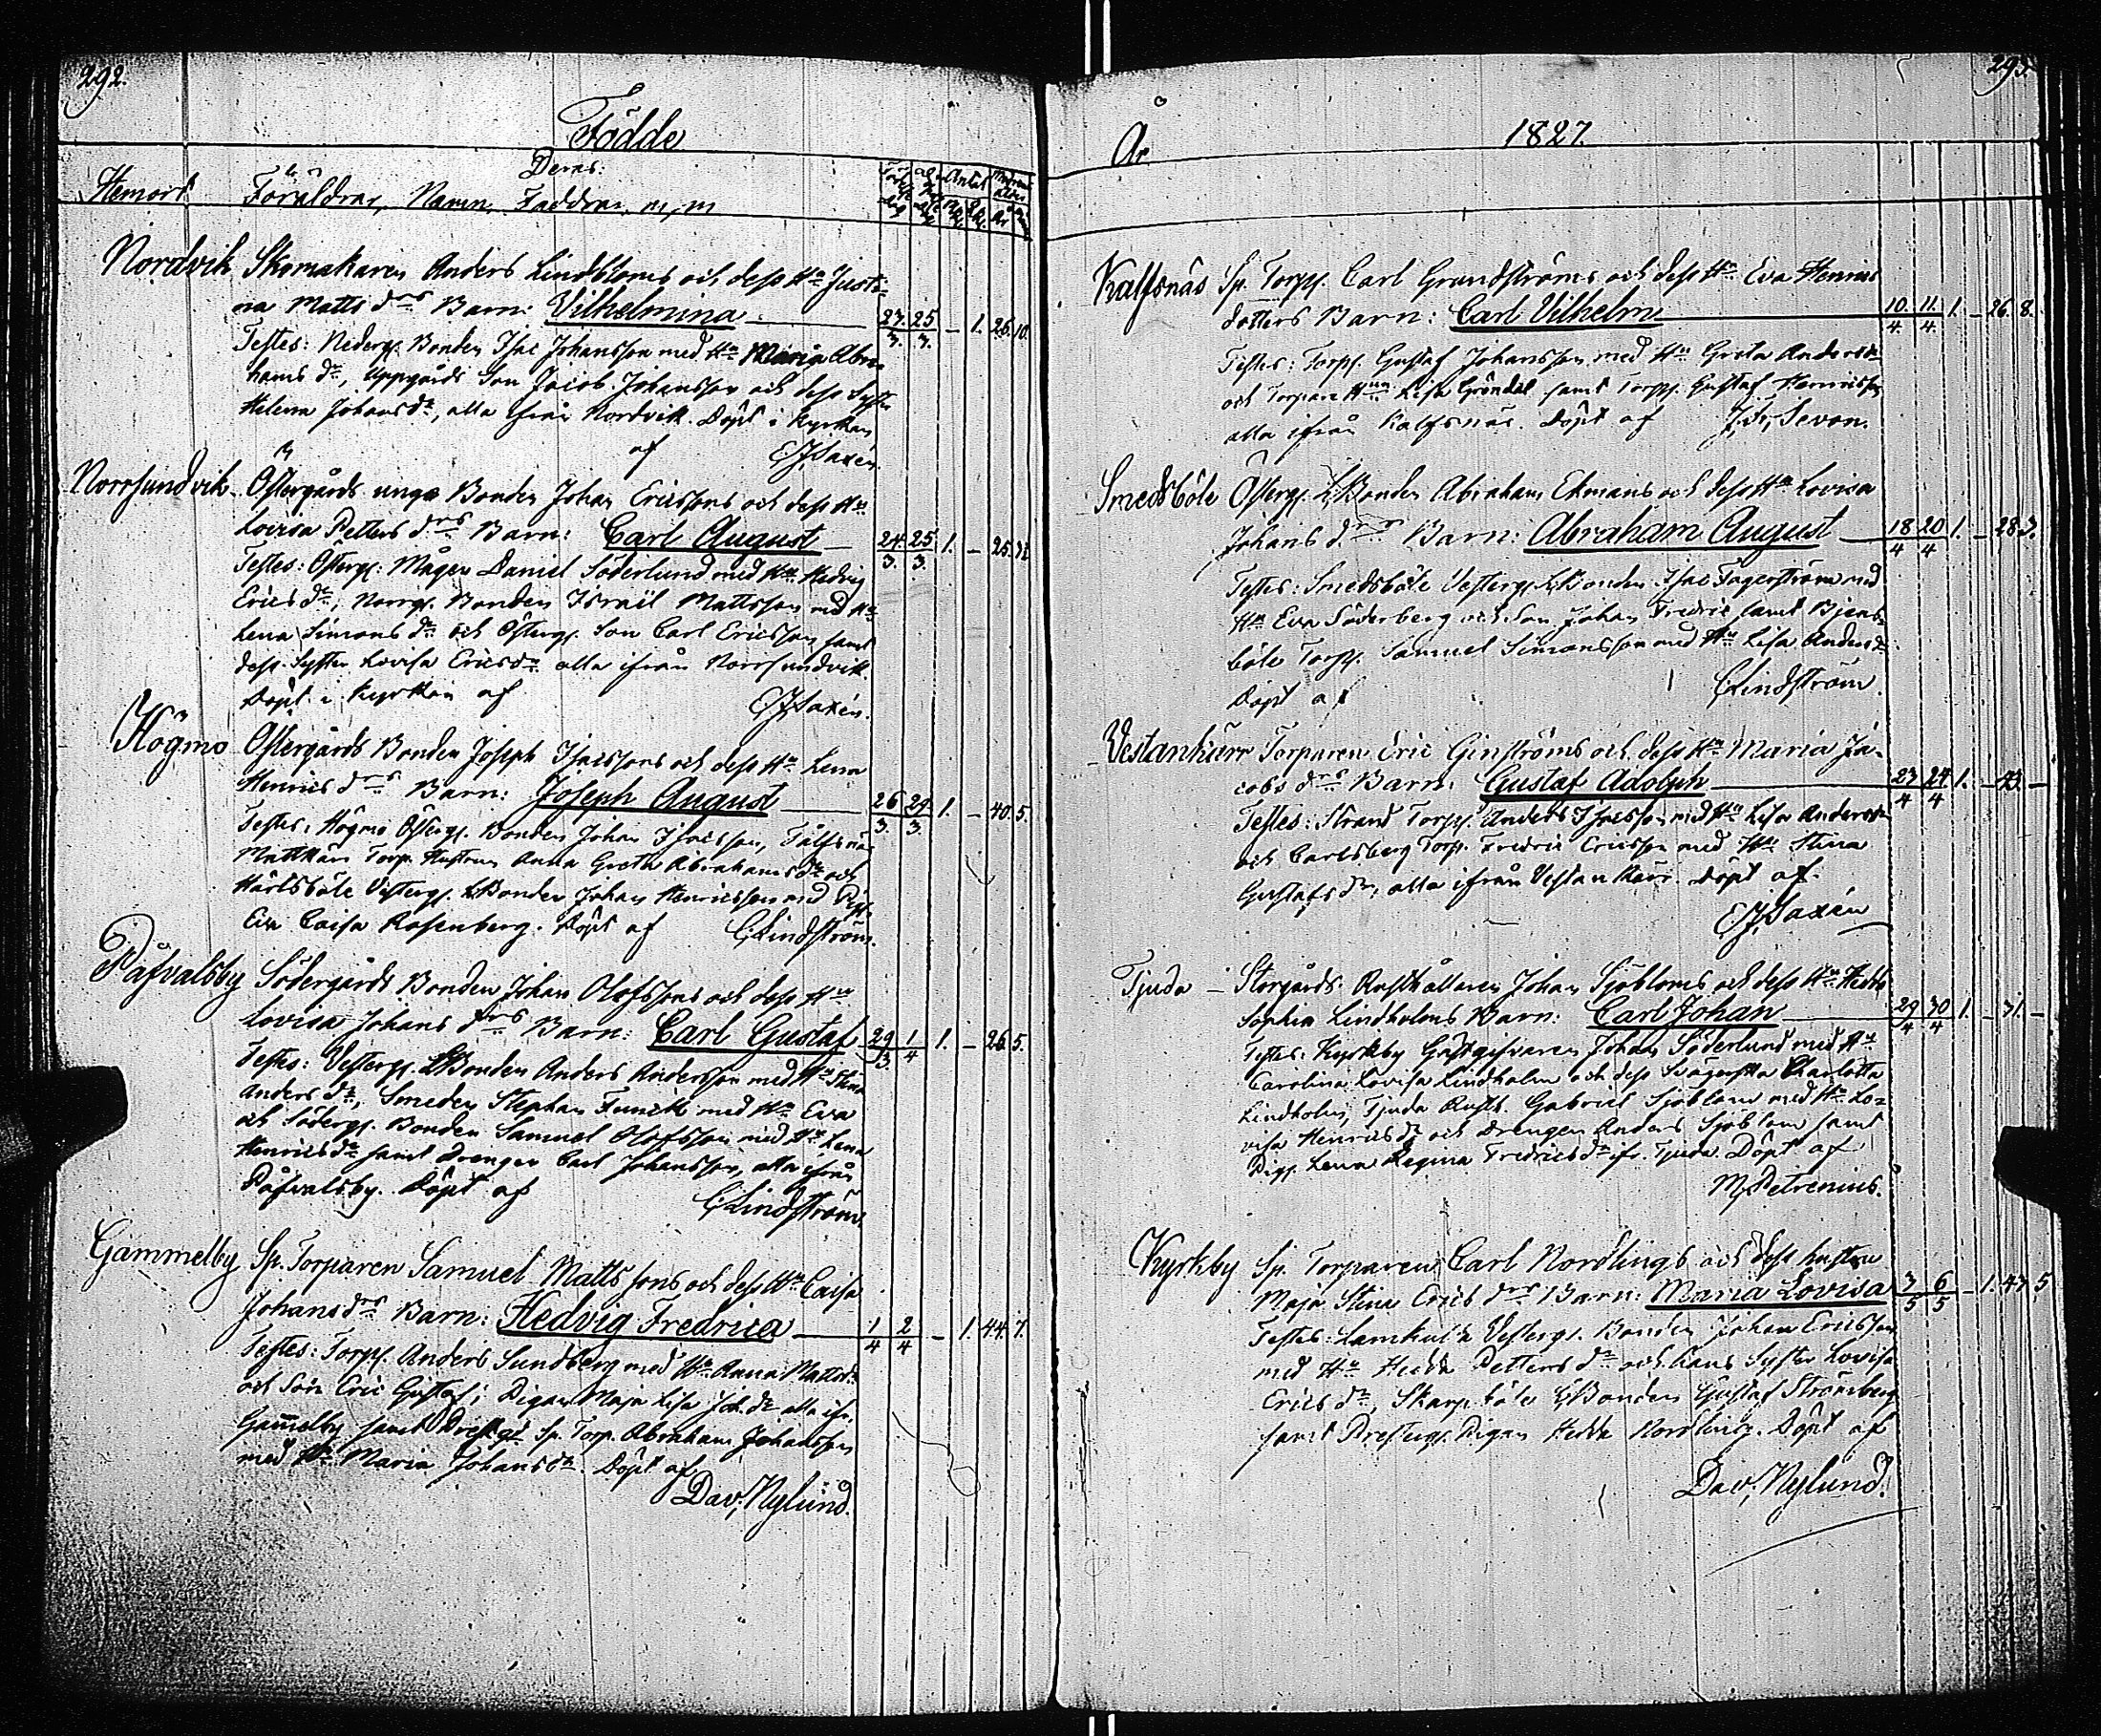 292.
Födde
Deras:
Hemort Föräldrar, Namn, Faddrar, m, m
Nordvik Skomakaren Anders Lindbloms och dess Hu Justi-
na Matts drs Barn: Vilhelmina 23/3. 25/3. – 1. 26. 10.
Testes: Nederg. Bonden Isac Johansson med Hu Maria Abra-
hams dr, Uppgårds Son Jacob Johansson och dess Syster
Helena Johans dr, alla ifrån Nordvik. Döpt i Kyrkan
af E J Saxén.
Norrsundvik Östergårds unga Bonden Johan Ericssons och dess Hu
Lovisa Petters drs Barn: Carl August 24/3. 25/3. 1. – 25. 11
Testes: Österg: Mågen Daniel Söderlund med Hu Hedvig
Erics dr, Norrg. Bonden Israël Mattsson med Hu
Lena Simons dr och Österg. Son Carl Ericsson samt
dess Syster Lovisa Ericsdr alla ifrån Norrsundvik.
Döpt i Kyrkan af E J Saxén.
Högmo Östergårds Bonden Joseph Isacssons och dess Hu Lena
Henrics drs Barn: Joseph August 26/3. 29/3. 1. – 40. 5.
Testes: Högmo Österg. Bonden Johan Isacsson,
Torp. Hustrun Anna Greta Abrahamsdr och
Härtsböle Vesterg. Bonden Johan Henricsson med Pig.
Eva Caisa Rosenberg. Döpt af C Lindström.
Påfvalsby Södergårds Bonden Johan Olofssons och dess Hu
Lovisa Johans drs Barn: Carl Gustaf 29/3. 1/4 1. – 26. 5.
Testes: Vesterg. Bonden Anders Andersson med Hu Stina
Anders dr, Smeden Stephan Funck med Hu Eva
och Söderg. Bonden Samuel Olofsson med Hu Lena
Henricsdr samt Drengen Carl Johansson, alla ifrån
Påfvalsby. Döpt af C Lindström.
Gammelby Sp. Torparen Samuel Mattssons och dess Hu Caisa
Johansdrs Barn: Hedvig Fredrica 1/4 2/4 – 1. 44. 7.
Testes: Torp. Anders Sundberg med Hu Anna Mattsdr
och Son Eric Gustaf; Pigan Maja Lisa Joh.dr alla ifr.
Gamelby samt Sp. Torp. Abraham Johansson
med Hu Maria Johansdr. Döpt af
Dav; Nylund.
293.
År 1827.
Kalfsnäs Sp. Torp. Carl Grundströms och dess Hu Eva Henrics
dotters Barn: Carl Vilhelm 10./4. 11./4. 1. – 26. 8.
Testes: Torp. Gustaf Johansson med Hu Greta Andersdr
och Torpare Hun Lisa Gröndal samt Torp. Gustaf Henricsson
alla ifrån Kalfsnäs. Döpt af J, Fr, Sevon.
Smedsböle Österg. Bonden Abraham Ekmans och dess Hu Lovisa
Johans drs Barn: Abraham August 18/4 20/4 1. – 28. 3.
Testes: Smedsböle Vesterg. Bonden Isac Fagerström med
Hu Eva Söderberg och Son Johan Fredric samt Bjens-
böle Torp. Samuel Simonsson med Hu Lisa Andersdr
Döpt af C Lindström.
Vestankärr Torparen Eric Ginströms och dess Hu Maria Ja-
cobs drs Barn: Gustaf Adolph 23/4 24/4 1. – 43. –
Testes: Strand Torp. Anders Isacsson med Hu Lisa Andersdr
och Carlsberg Torp. Fredric Ericsson med Hu Stina
Gustafsdr, alla ifrån Vestankärr. Döpt af
E J Saxén
Tjuda – Storgårds Rusthållaren Johan Sjöbloms och dess Hu Hedda
Sophia Lindholms Barn: Carl Johan 29/4 30/4 1. – 31. –
Testes: Kyrkby Gästgifvaren Johan Söderlund med Hu
Carolina Lovisa Lindholm och dess Svägerska Charlotta
Lindholm, Tjuda Rusth. Gabriel Sjöblom med Hu Lo-
visa Henricsdr och Drengen Anders Sjöblom samt
Pig. Lena Regina Fredricsdr ifr. Tjuda. Döpt af
M Petrenius.
Kyrkby Sp. Torparen Carl Nordlings och dess hustru
Maja Stina Erics drs Barn: Maria Lovisa 3/5 6/5 – 1. 43. 5
Testes: Lamkulla Vesterg. Bonden Johan Ericsson
med Hu Hedda Petters dr och hans Syster Lovisa
Erics dr, Skarpböle Bonden Gustaf Strömberg
samt Presteg. Pigan Hedda Nordling. Döpt af
Dav; Nylund.